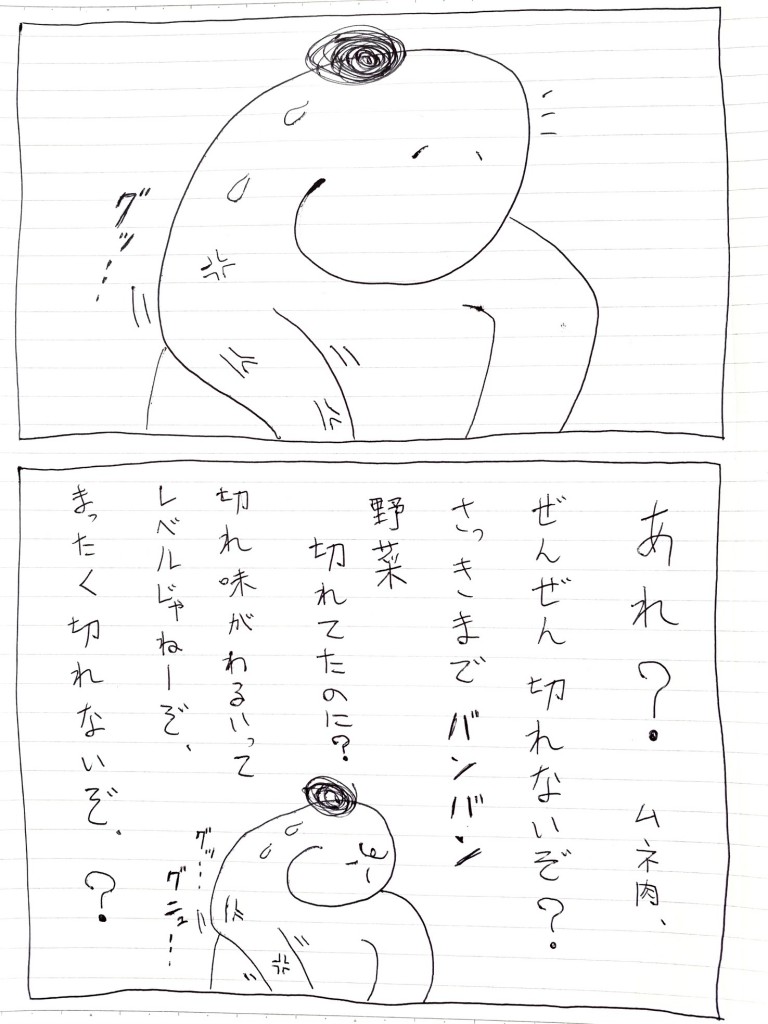 グッ…
あれ？ ムネ肉、
ぜんぜん 切れないぞ？
さっきまで バンバン
野菜
切れてたのに？
切れ味がわるいって
レベルじゃねーぞ、
まったく切れないぞ、？
グッ…
グニュ…